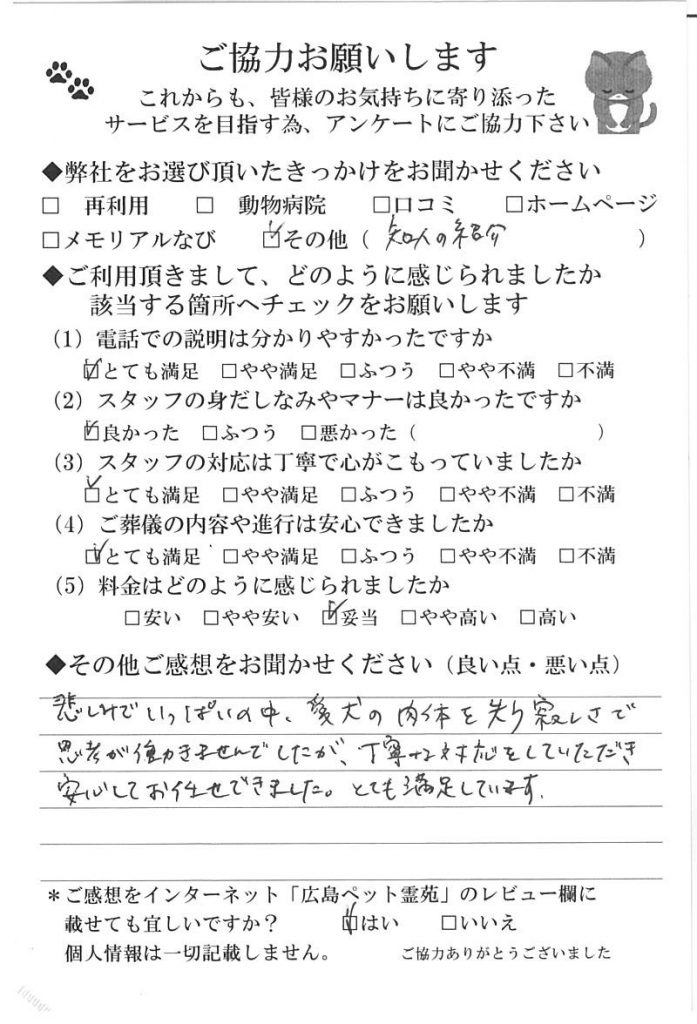 ご協力お願いします
これからも、皆様のお気持ちに寄り添った
サービスを目指す為、アンケートにご協力下さい
◆弊社をお選び頂いたきっかけをお聞かせください
□ 再利用 □ 動物病院 □口コミ □ホームページ
□メモリアルなび ☑その他（ 知人の紹介 ）
◆ご利用頂きまして、どのように感じられましたか
該当する箇所へチェックをお願いします
（1）電話での説明は分かりやすかったですか
☑とても満足 □やや満足 □ふつう □やや不満 □不満
（2）スタッフの身だしなみやマナーは良かったですか
☑良かった □ふつう □悪かった（ ）
（3）スタッフの対応は丁寧で心がこもっていましたか
☑とても満足 □やや満足 □ふつう □やや不満 □不満
（4）ご葬儀の内容や進行は安心できましたか
☑とても満足 □やや満足 □ふつう □やや不満 □不満
（5）料金はどのように感じられましたか
□安い □やや安い ☑妥当 □やや高い □高い
◆その他ご感想をお聞かせください（良い点・悪い点）
悲しみでいっぱいの中、愛犬の肉体を失り寂しさで
思考が働きませんでしたが、丁寧な対応をしていただき
安心してお任せできました。とても満足しています。
＊ご感想をインターネット「広島ペット霊苑」のレビュー欄に
載せても宜しいですか？ ☑はい □いいえ
個人情報は一切記載しません。 ご協力ありがとうございました